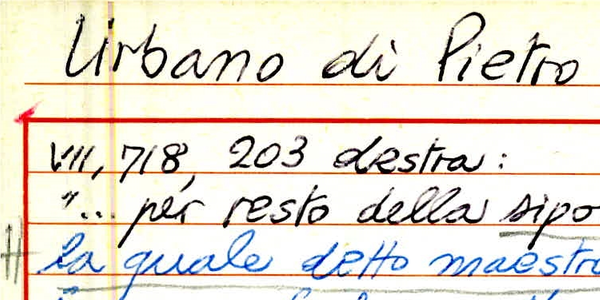 Urbano di Pietro
VII, 718, 203 destra:
"... per resto della sipo
la quale detto maestro